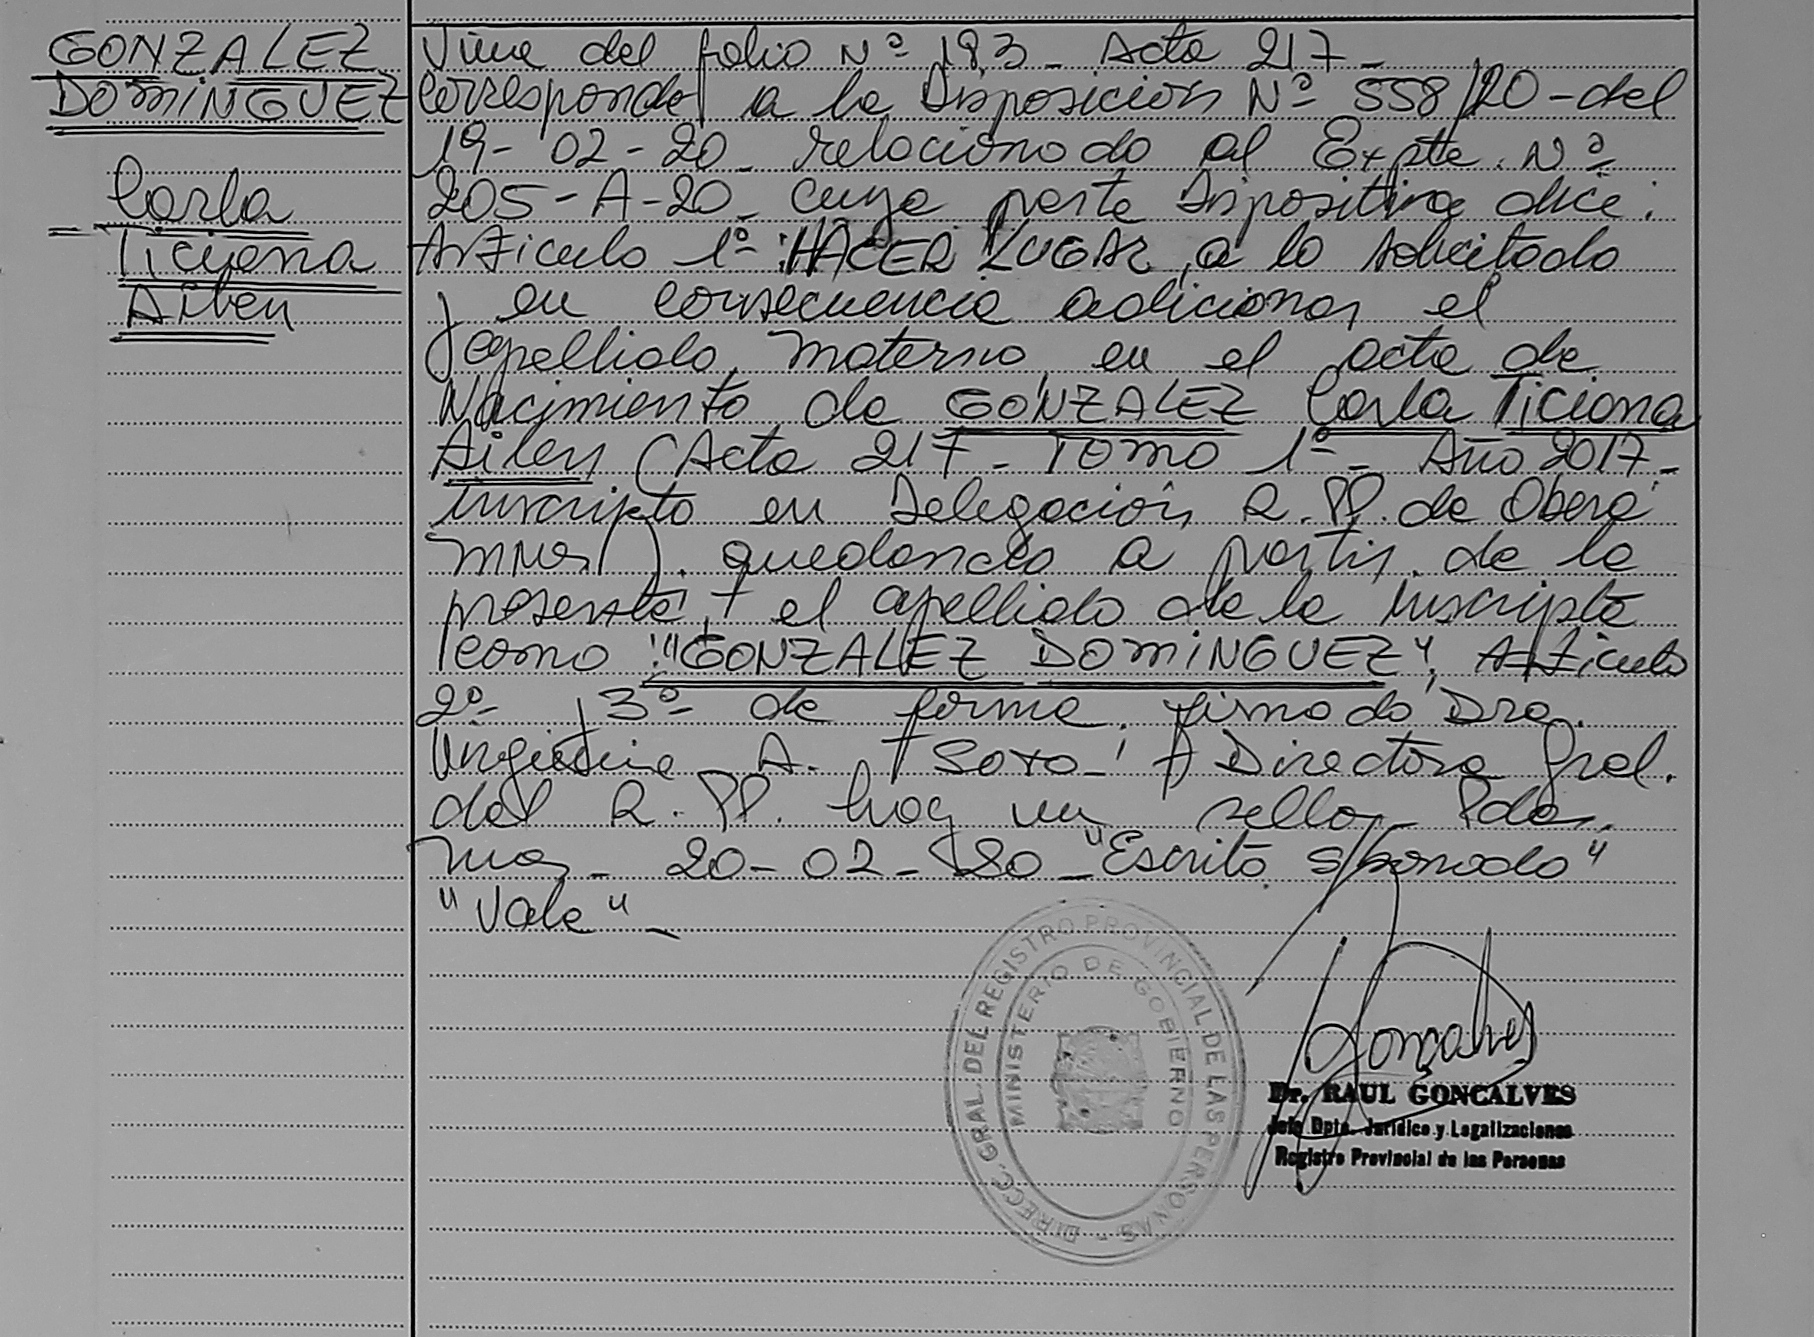 GONZALEZ
DOMINGUEZ
Carla
Ticiana
Ailen
Viene del folio Nº 193 - Acta 217 -
Corresponde a la Disposición Nº 558/20 - del
19 - 02 - 20 - relacionado al Expte. Nº
205 - A - 20 - cuya parte dispositiva dice:
Artículo 1º: HACER LUGAR, a lo solicitado
y en consecuencia adicionar el
apellido materno en el acta de
Nacimiento de GONZALEZ Carla Ticiana
Ailen (Acta 217 - Tomo 1º - Año 2017 -
inscripto en Delegación R. PP. de Oberá
Mnes). quedando a partir de la
presente, el apellido de la inscripta
como: "GONZALEZ DOMINGUEZ", Artículo
2º y 3º de forma. firmado Dra.
A. Soto - Directora Gral.
del R. PP. hay un sello - Pdas.
Mnes - 20 - 02 - 20 - "Escrito s/borrado"
"Vale" -
DIRECC. GRAL. DEL REGISTRO PROVINCIAL DE LAS PERSONAS -
MINISTERIO DE GOBIERNO
Dr. RAUL GONCALVES
Jefe Dpto. Jurídico y Legalizaciones
Registro Provincial de las Personas